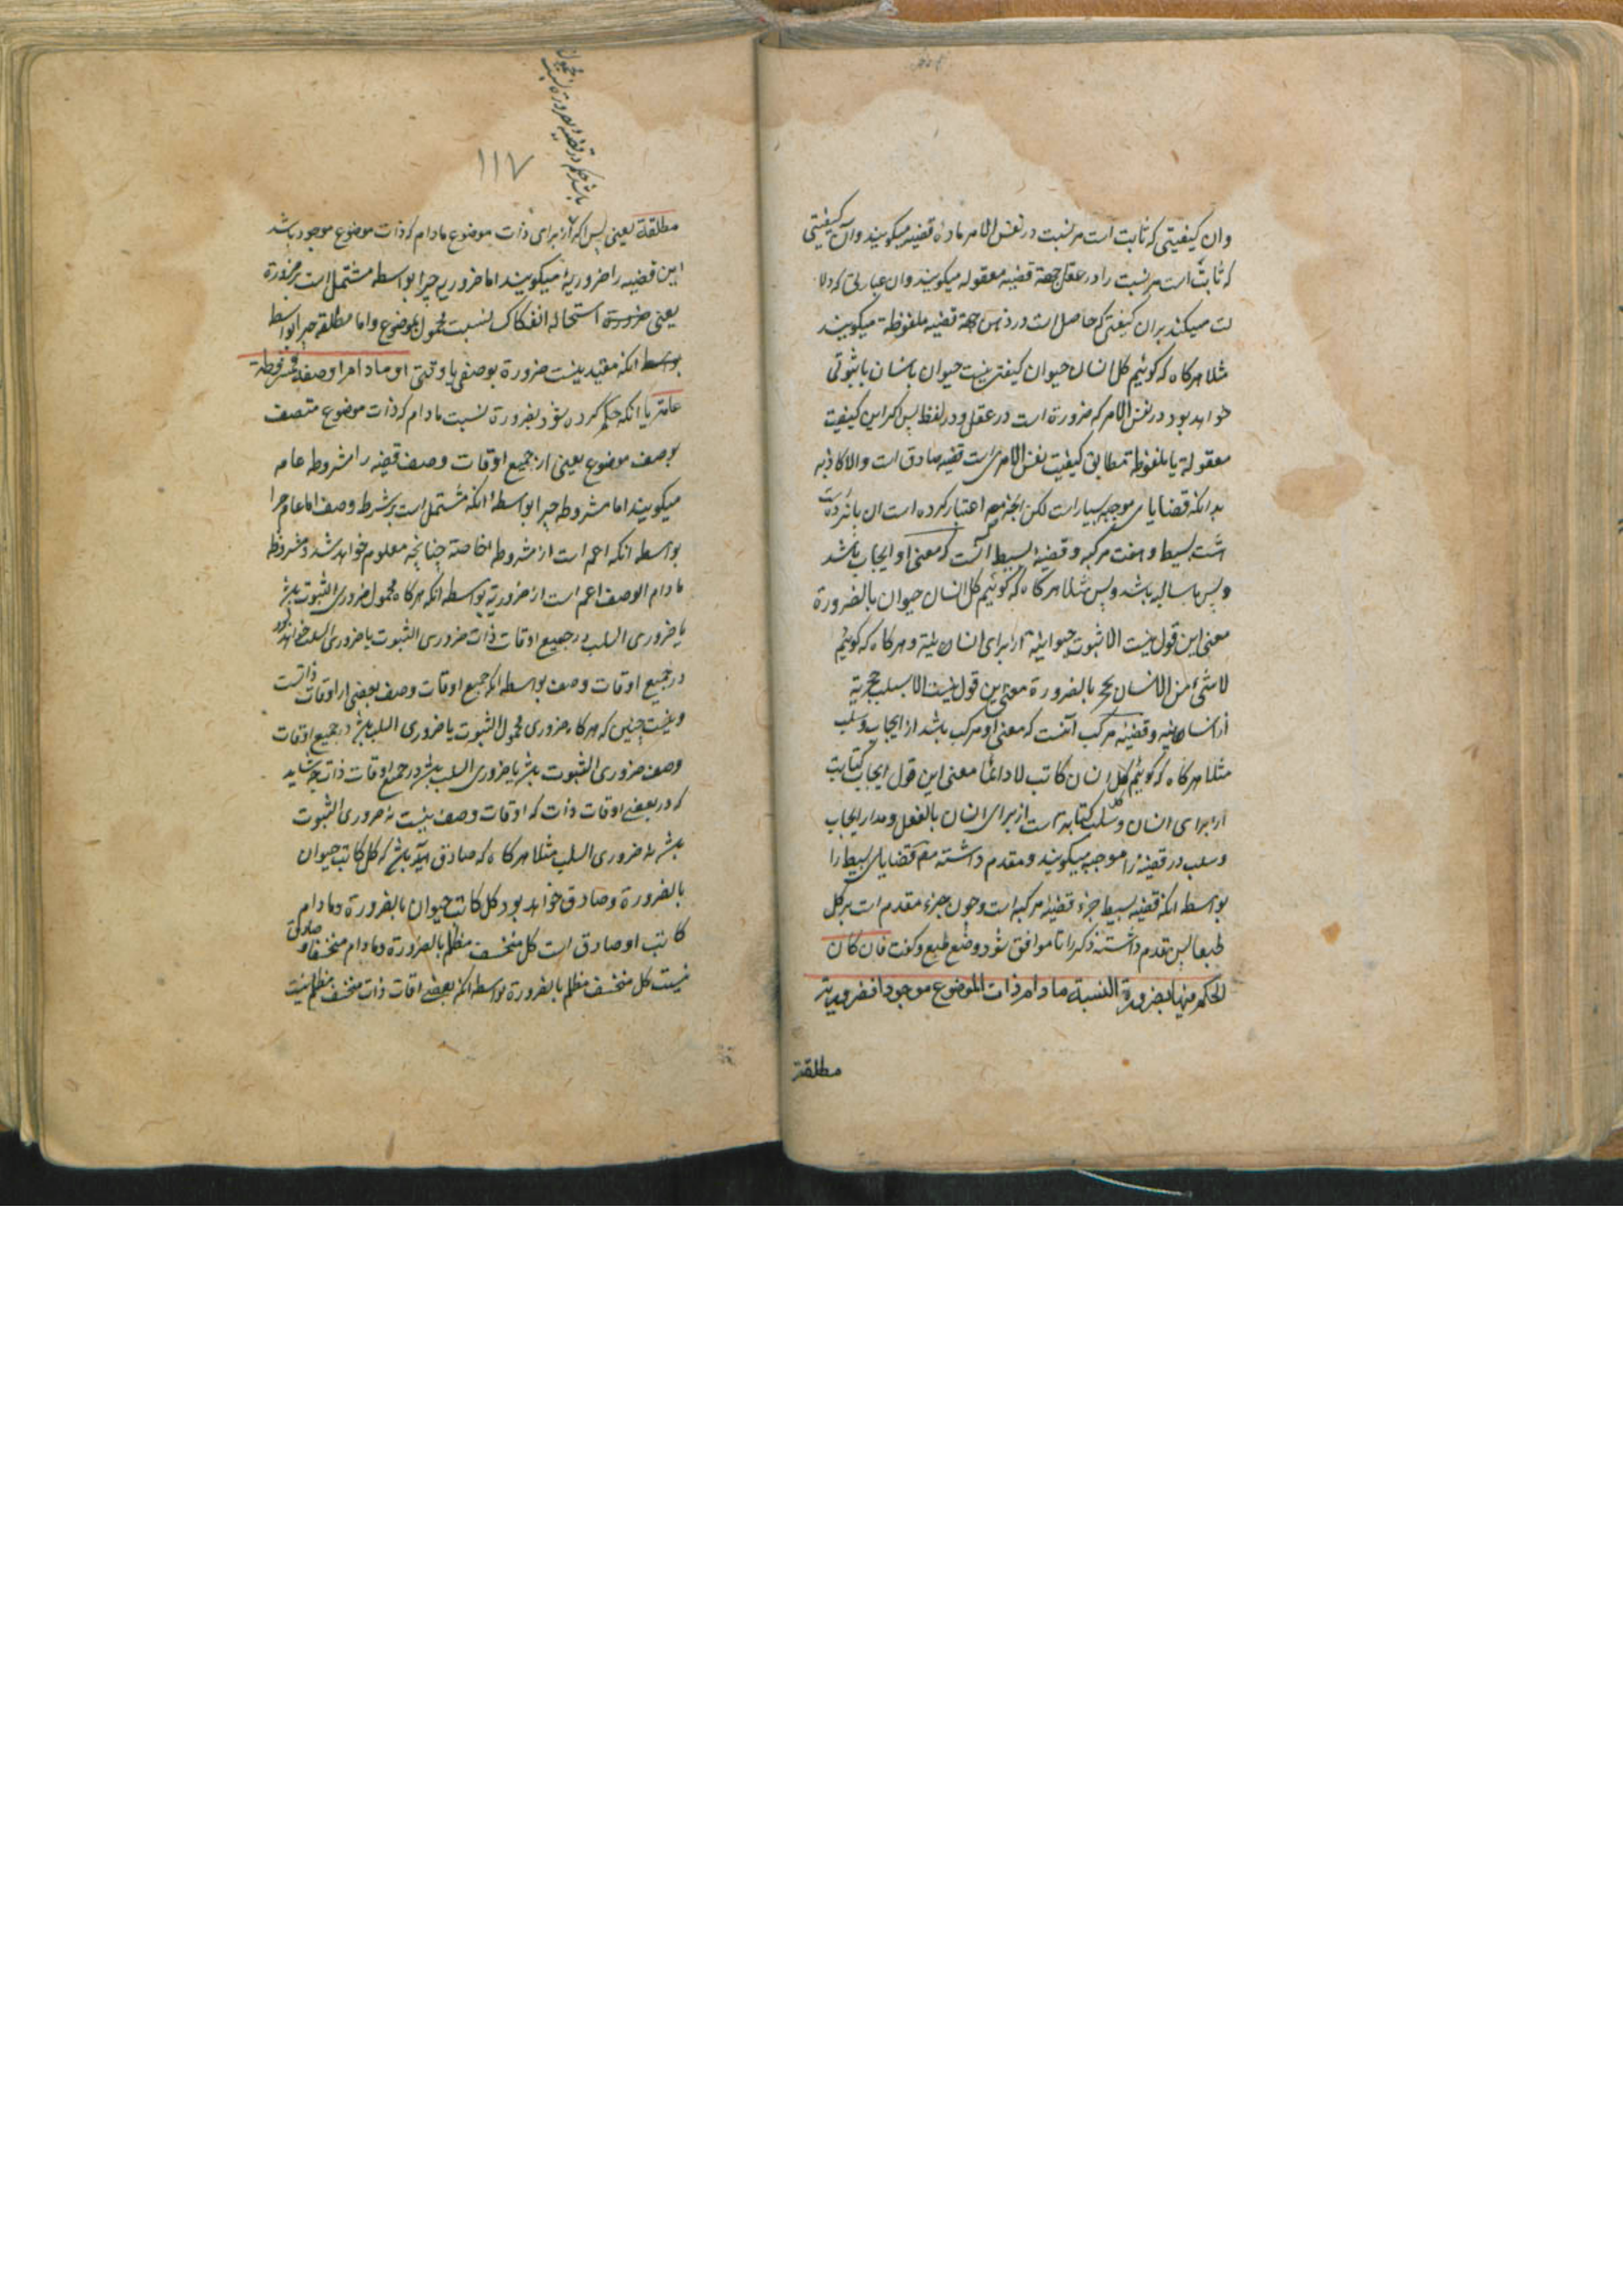 وان کیفیتی که ثابت است مر نسبت در نفس الامر ماده قضیه میکویند وان کیفیتی
که ثابت است مر نسبت را در عقل جهة قضیه معقوله میکویند وان عبارتی که دلا
لت میکند بران کیفیتی که حاصل است در ذهن جهة قضیه ملفوظة میکویند
مثلا هرکاه که کوئیم کل انسان حیوان کیفیتی نیست حیوان بانسان یا ثبوتی
خواهد بود در نفس الامر که ضرورة است در عقل و در لفظ پس اکر این کیفیت
معقولة یا ملفوظة مطابق کیفیت نفس الامری است قضیه صادق است والا کاذبه
بدانکه قضایای موجهه بسیار است لکن انچه مص اعتبار کرده است ان پانزده است
هشت بسیط و هفت مرکبه و قضیه بسیط آنست که معنی او ایجاب باشد
وبس یا سالبه باشد وبس مثلا هرکاه که کوئیم کل انسان حیوان بالضرورة
معنی این قول نیست الا ثبوت حیوانیة از برای انسان نیه و هرکاه که کوئیم
لاشئ من الانسان بحجر بالضرورة معنی این قول نیست الا سلب حجریة
از انسان نیه و قضیئه مرکب آنست که معنی او مرکب باشد از ایجاب و سلب
مثلا هرکاه که کوئیم کل انسان کاتب لا دائما معنی این قول ایجاب کتابت
از برای انسان و سلب کتابة است از برای انسان بالفعل و مدار ایجاب
وسلب در قضیه را موجبه میکویند و مقدم داشته مص قضایای بسیط را
بواسطه انکه قضیه بسیط جزء قضیئه مرکبه است وچون جزء مقدم است بر کل
طبعا پس مقدم داشته ذکر را تا موافق شود وضع طبع و کفت فان کان
الحکم فیها بضرورة النسبة مادام ذات الموضوع موجودا فضروریة
مطلقة
۱۱۷
باشد حکم در قضیه بضرورة نسبت محمول
مطلقة یعنی پس اکر از برای ذات موضوع مادام که ذات موضوع موجود باشد
این قضیه را ضروریة میکویند اما ضروریه چرا بواسطه مشتمل است بر ضرورة
یعنی ضرورة استحاله انفکاک نسبت محمول بموضوع واما مطلقه چرا بواسط
بوسط انکه مقید نیست ضرورة بوصفی یا وقتی او مادام وصفه فمشروطة
عامة یا انکه حکم کرده شود بضرورة نسبت مادام که ذات موضوع متصف
بوصف موضوع یعنی از جمیع اوقات وصف قضیه را مشروطه عامه
میکویند اما مشروطه چرا بواسطه انکه مشتمل است بر شرط وصف اما عام چرا
بواسطه انکه اعم است از مشروطه خاصة چنانچه معلوم خواهد شد و مشروطة
مادام الوصف اعم است از ضروریة بواسطه انکه هرکاه محمول ضروری الثبوت باشد
یا ضروری السلب در جمیع اوقات ذات ضروری الثبوت یا ضروری السلب خواهد بود
در جمیع اوقات وصف بواسطه انکه جمیع اوقات وصف بعضی از اوقات ذاتست
ونیست چنین که هرکاه ضروری محمول الثبوت یا ضروری السلب باشد در جمیع اوقات
وصف ضروری الثبوت باشد یا ضروری السلب باشد در جمیع اوقات ذات چه شاید
که در بعضی اوقات ذات که اوقات وصف نیست نه ضروری الثبوت
باشد نه ضروری السلب مثلا هرکاه که صادق باشد که کل کاتب حیوان
بالضرورة وصادق خواهد بود کل کاتب حیوان بالضرورة ومادام
کاتبا وصادق است کل منخسف مظلم بالضرورة ومادام منخسفا و صادق
نیست کل منخسف مظلم بالضرورة بواسطه انکه بعضی اوقات ذات منخسف مظلم نیست